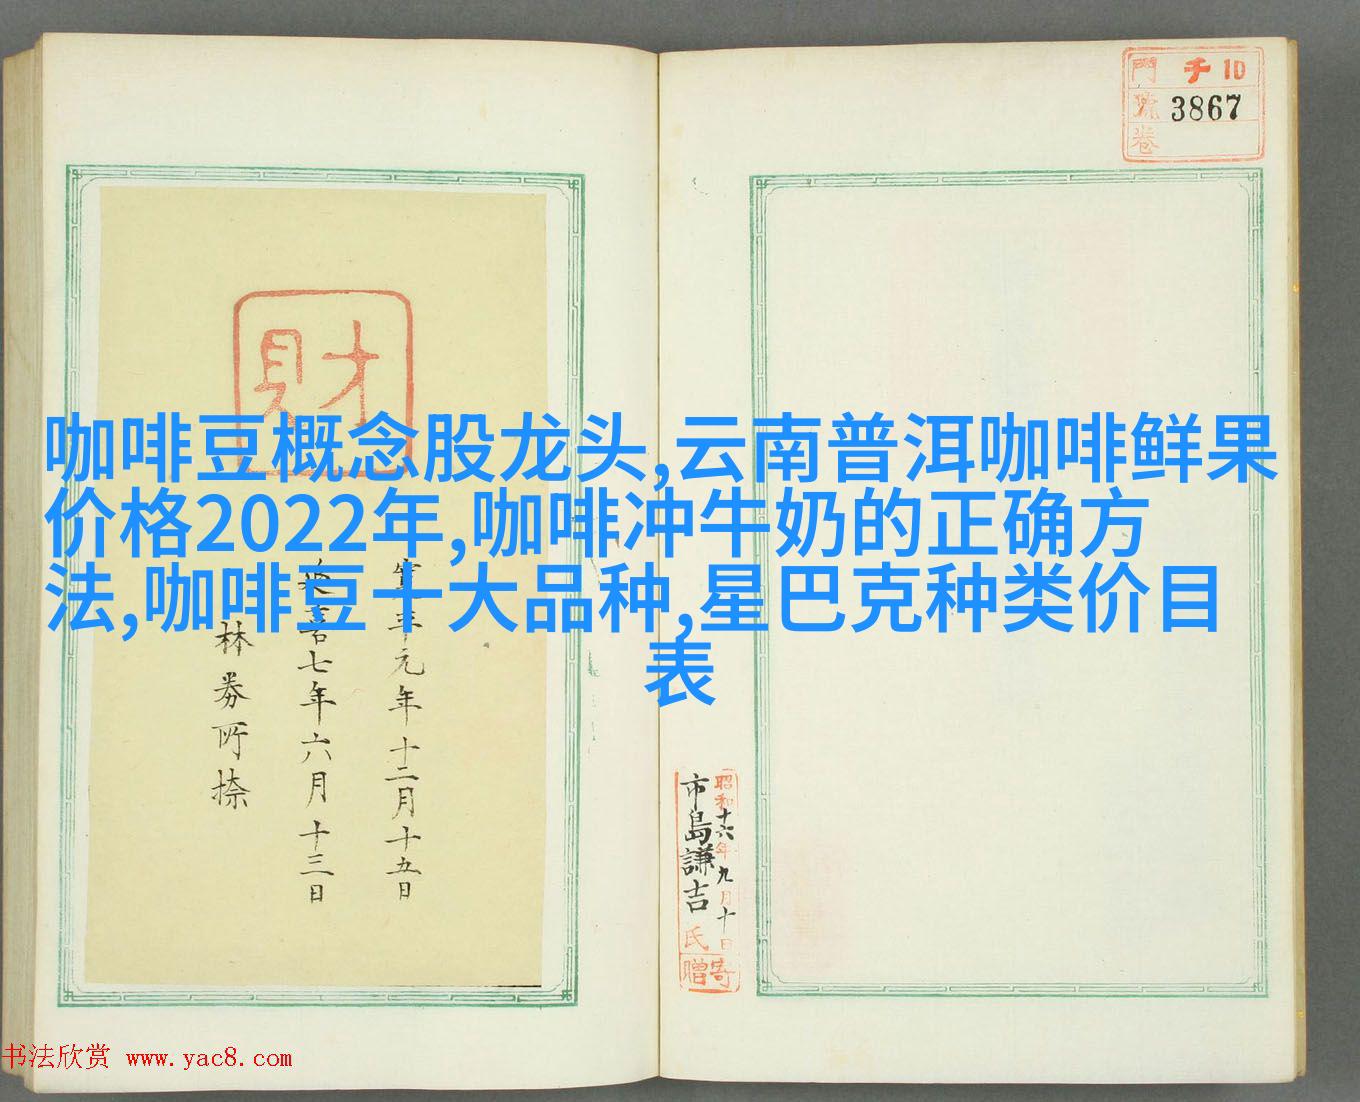 門 チ 10
號 3867
卷
財
咖啡豆概念股龙头,云南普洱咖啡鲜果
价格2022年,咖啡冲牛奶的正确方
法,咖啡豆十大品种,星巴克种类价目
表
元年十二月十五日
七年六月十三日
林
所
昭和十六年九月十日
市島謙吉氏
寄贈
书法欣赏 www.yac8.com